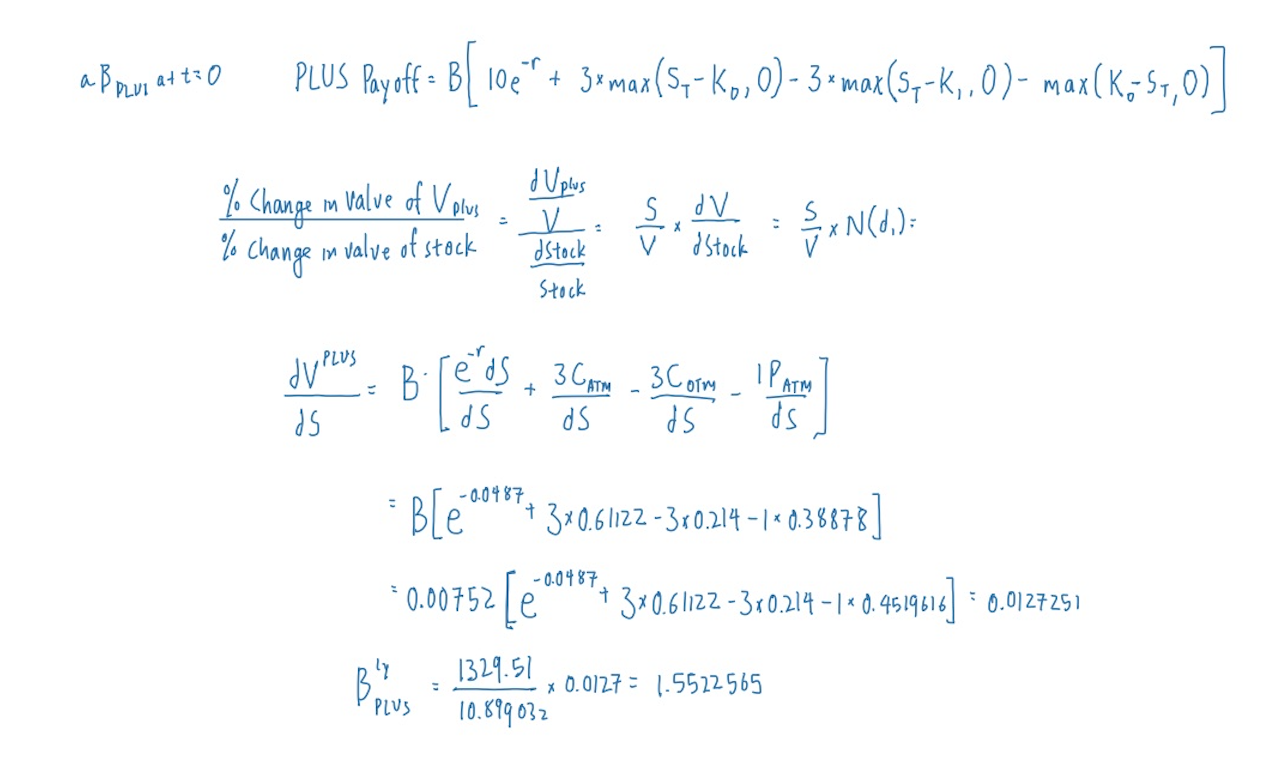 a B PLUS at t=0 PLUS Payoff = B[10e^-r + 3*max(S_T-K_0,0) - 3*max(S_T-K_1,0) - max(K_0-S_T,0)]
% Change in value of V plus / % Change in value of stock = (dV plus / V) / (dStock / Stock) = S/V × dV/dStock = S/V × N(d_1) =
dV^PLUS/dS = B·[e^-r dS/dS + 3C_ATM/dS - 3C_OTM/dS - 1P_ATM/dS]
= B[e^-0.0487 + 3×0.61122 - 3×0.214 - 1×0.38878]
= 0.00752[e^-0.0487 + 3×0.61122 - 3×0.214 - 1×0.4519616] = 0.0127251
B^1y_PLUS = 1329.51/10.899032 × 0.0127 = 1.5522565